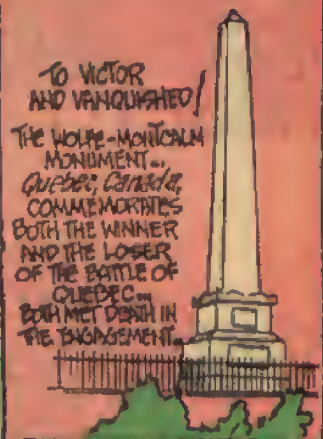 TO VICTOR
AND VANQUISHED!
THE WOLFE-MONTCALM
MONUMENT...
Quebec, Canada,
COMMEMORATES
BOTH THE WINNER
AND THE LOSER
OF THE BATTLE OF
QUEBEC...
BOTH MET DEATH IN
THE ENGAGEMENT...